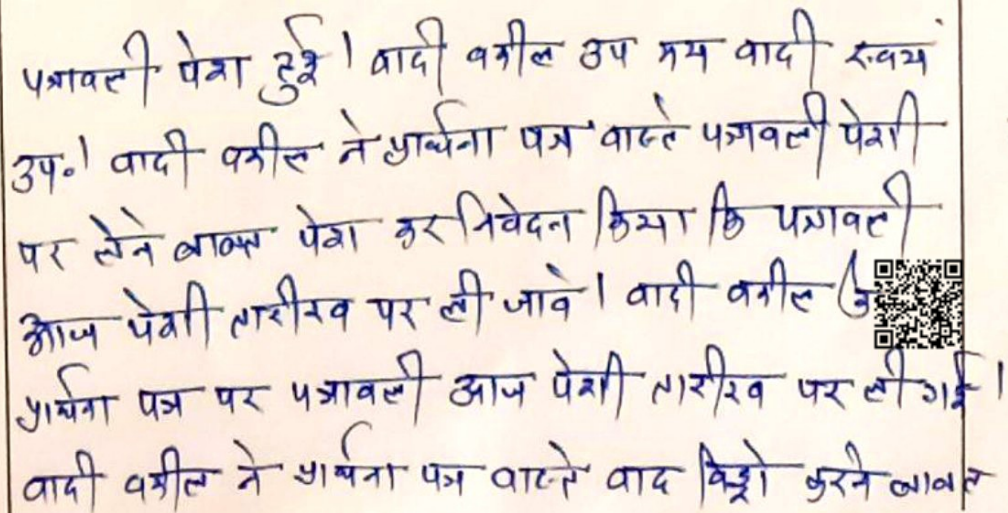 पत्रावली पेश हुई। वादी वकील उप मय वादी स्वयं
उप०। वादी वकील ने प्रार्थना पत्र वास्ते पत्रावली पेशी
पर लेने बाबत पेश कर निवेदन किया कि पत्रावली
आज पेशी तारीख पर ली जावे। वादी वकील
प्रार्थना पत्र पर पत्रावली आज पेशी तारीख पर ली गई।
वादी वकील ने प्रार्थना पत्र वास्ते वाद विड्रो करने बाबत